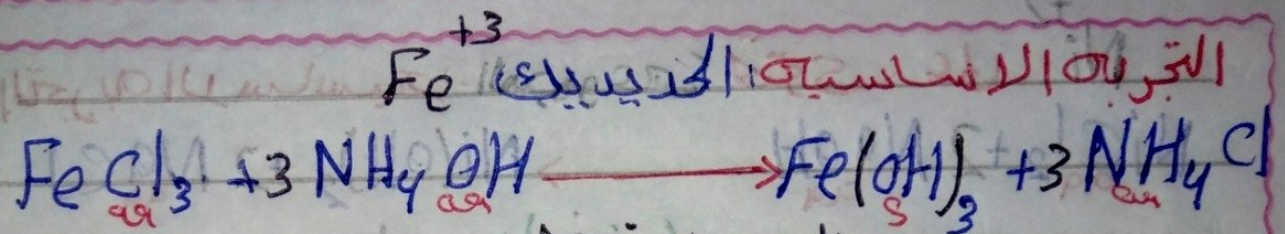 التجربة الاساسية: الحديديك Fe+3
FeCl3 + 3NH4OH → Fe(OH)3 + 3NH4Cl
aq aq s aq